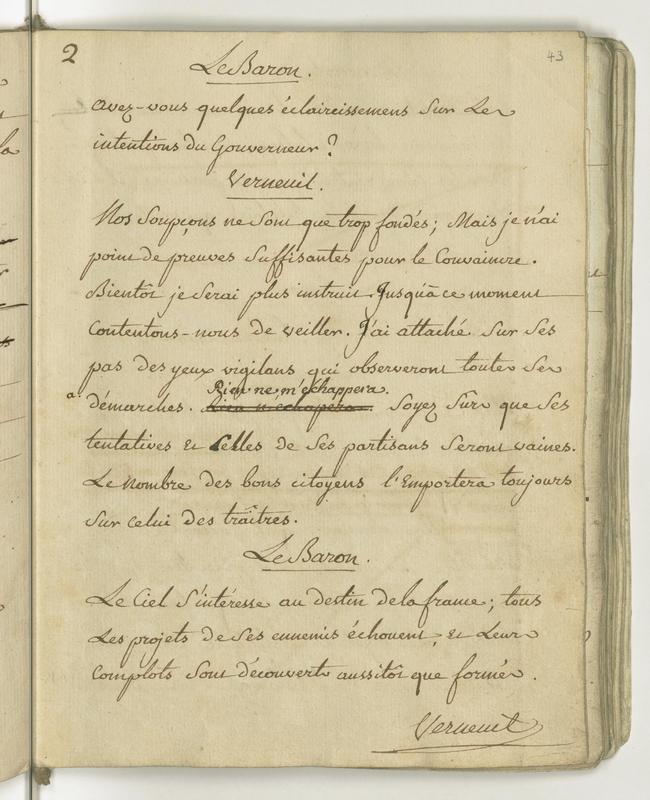 2
43
Le Baron.
avez-vous quelques éclaircissemens sur Les
intentions du Gouverneur ?
Verneuil.
Nos Soupçons ne Sont que trop fondés ; Mais je n'ai
point de preuves Suffisantes pour le Convaincre.
Bientôt je Serai plus instruit. Jusqu'à ce moment
Contentons-nous de veiller. J'ai attaché Sur Ses
pas des yeux vigilans qui observeront toutes Ses
Rien ne m'échappera.
démarches. Rien n'échapera Soyez Sûr que Ses
tentatives et Celles de Ses partisans Seront vaines.
Le nombre des bons citoyens l'Emportera toujours
Sur celui des traîtres.
Le Baron.
Le Ciel S'intéresse au destin de la france ; tous
Les projets de Ses ennemis échouent, et Leurs
Complots Sont découverts aussitôt que formés.
Verneuil